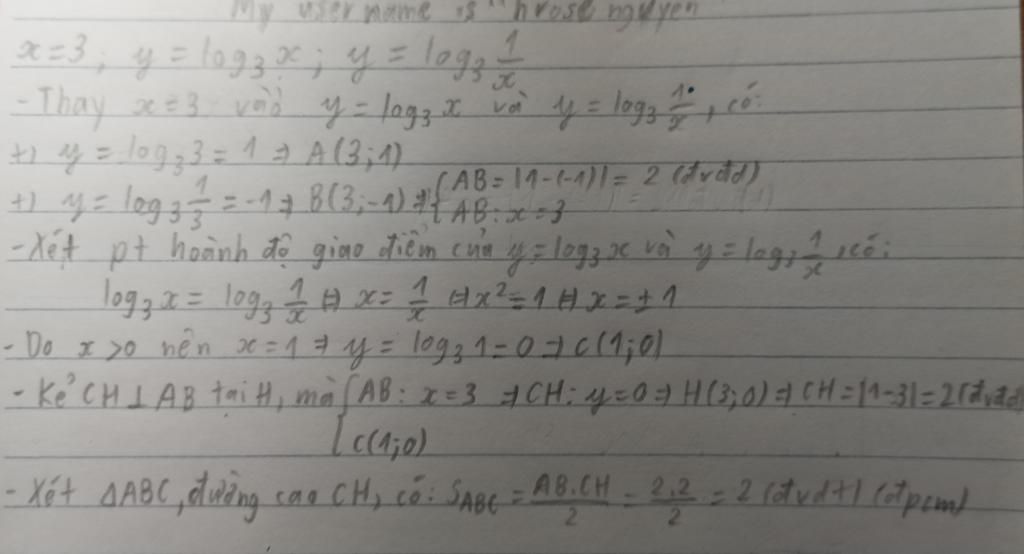 My username is throse nguyen
x=3; y = log₃ x; y = log₃ 1/x
- Thay x=3 vào y = log₃ x và y = log₃ 1/x, có:
+) y = log₃ 3 = 1 ⇒ A(3;1)
+) y = log₃ 1/3 = -1 ⇒ B(3;-1) ⇒ { AB = |1-(-1)| = 2 (đvđd)
AB: x=3
- Xét pt hoành độ giao điểm của y=log₃ x và y = log₃ 1/x, có:
log₃ x = log₃ 1/x ⇔ x = 1/x ⇔ x² = 1 ⇔ x = ± 1
- Do x >0 nên x=1 ⇒ y = log₃ 1 = 0 ⇒ C(1;0)
- Kẻ CH ⊥ AB tại H, mà { AB: x=3 ⇒ CH: y=0 ⇒ H(3;0) ⇒ CH = |1-3| = 2(đvđd)
C(1;0)
- Xét ΔABC, đường cao CH, có: S_ABC = AB.CH/2 = 2.2/2 = 2 (đvdt) (đpcm)